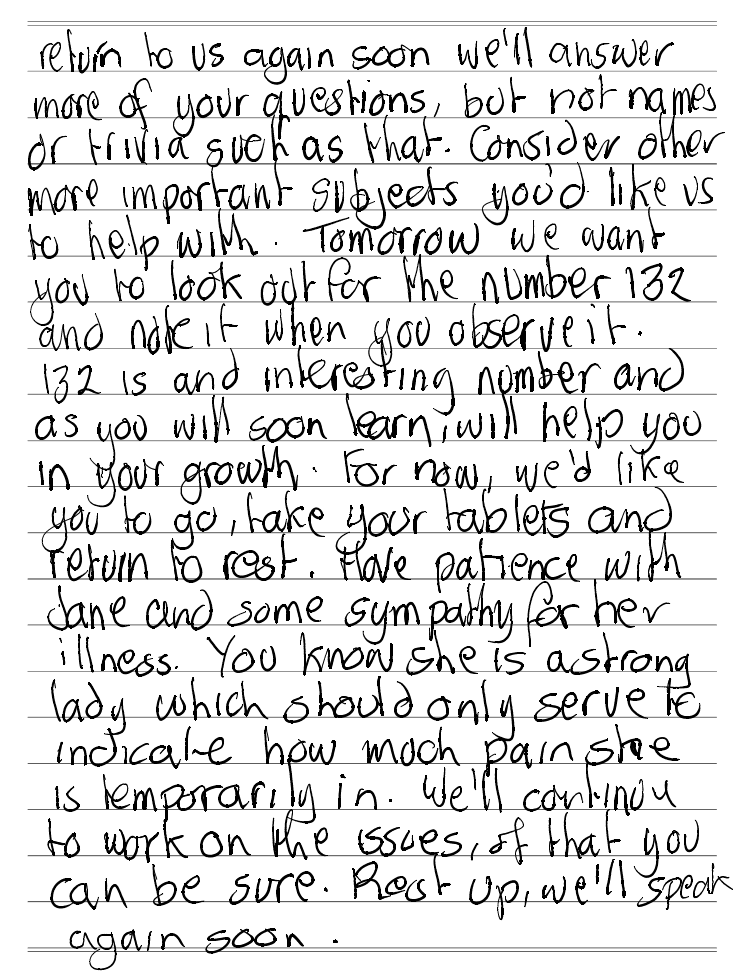 return to us again soon we'll answer
more of your questions, but not names
or trivia such as that. Consider other
more important subjects you'd like us
to help with. Tomorrow we want
you to look out for the number 132
and note it when you observe it.
132 is and interesting number and
as you will soon learn, will help you
in your growth. For now, we'd like
you to go, take your tablets and
return to rest. Have patience with
Jane and some sympathy for her
illness. You know she is a strong
lady which should only serve to
indicate how much pain she
is temporarily in. We'll continu
to work on the issues, of that you
can be sure. Rest up, we'll speak
again soon.